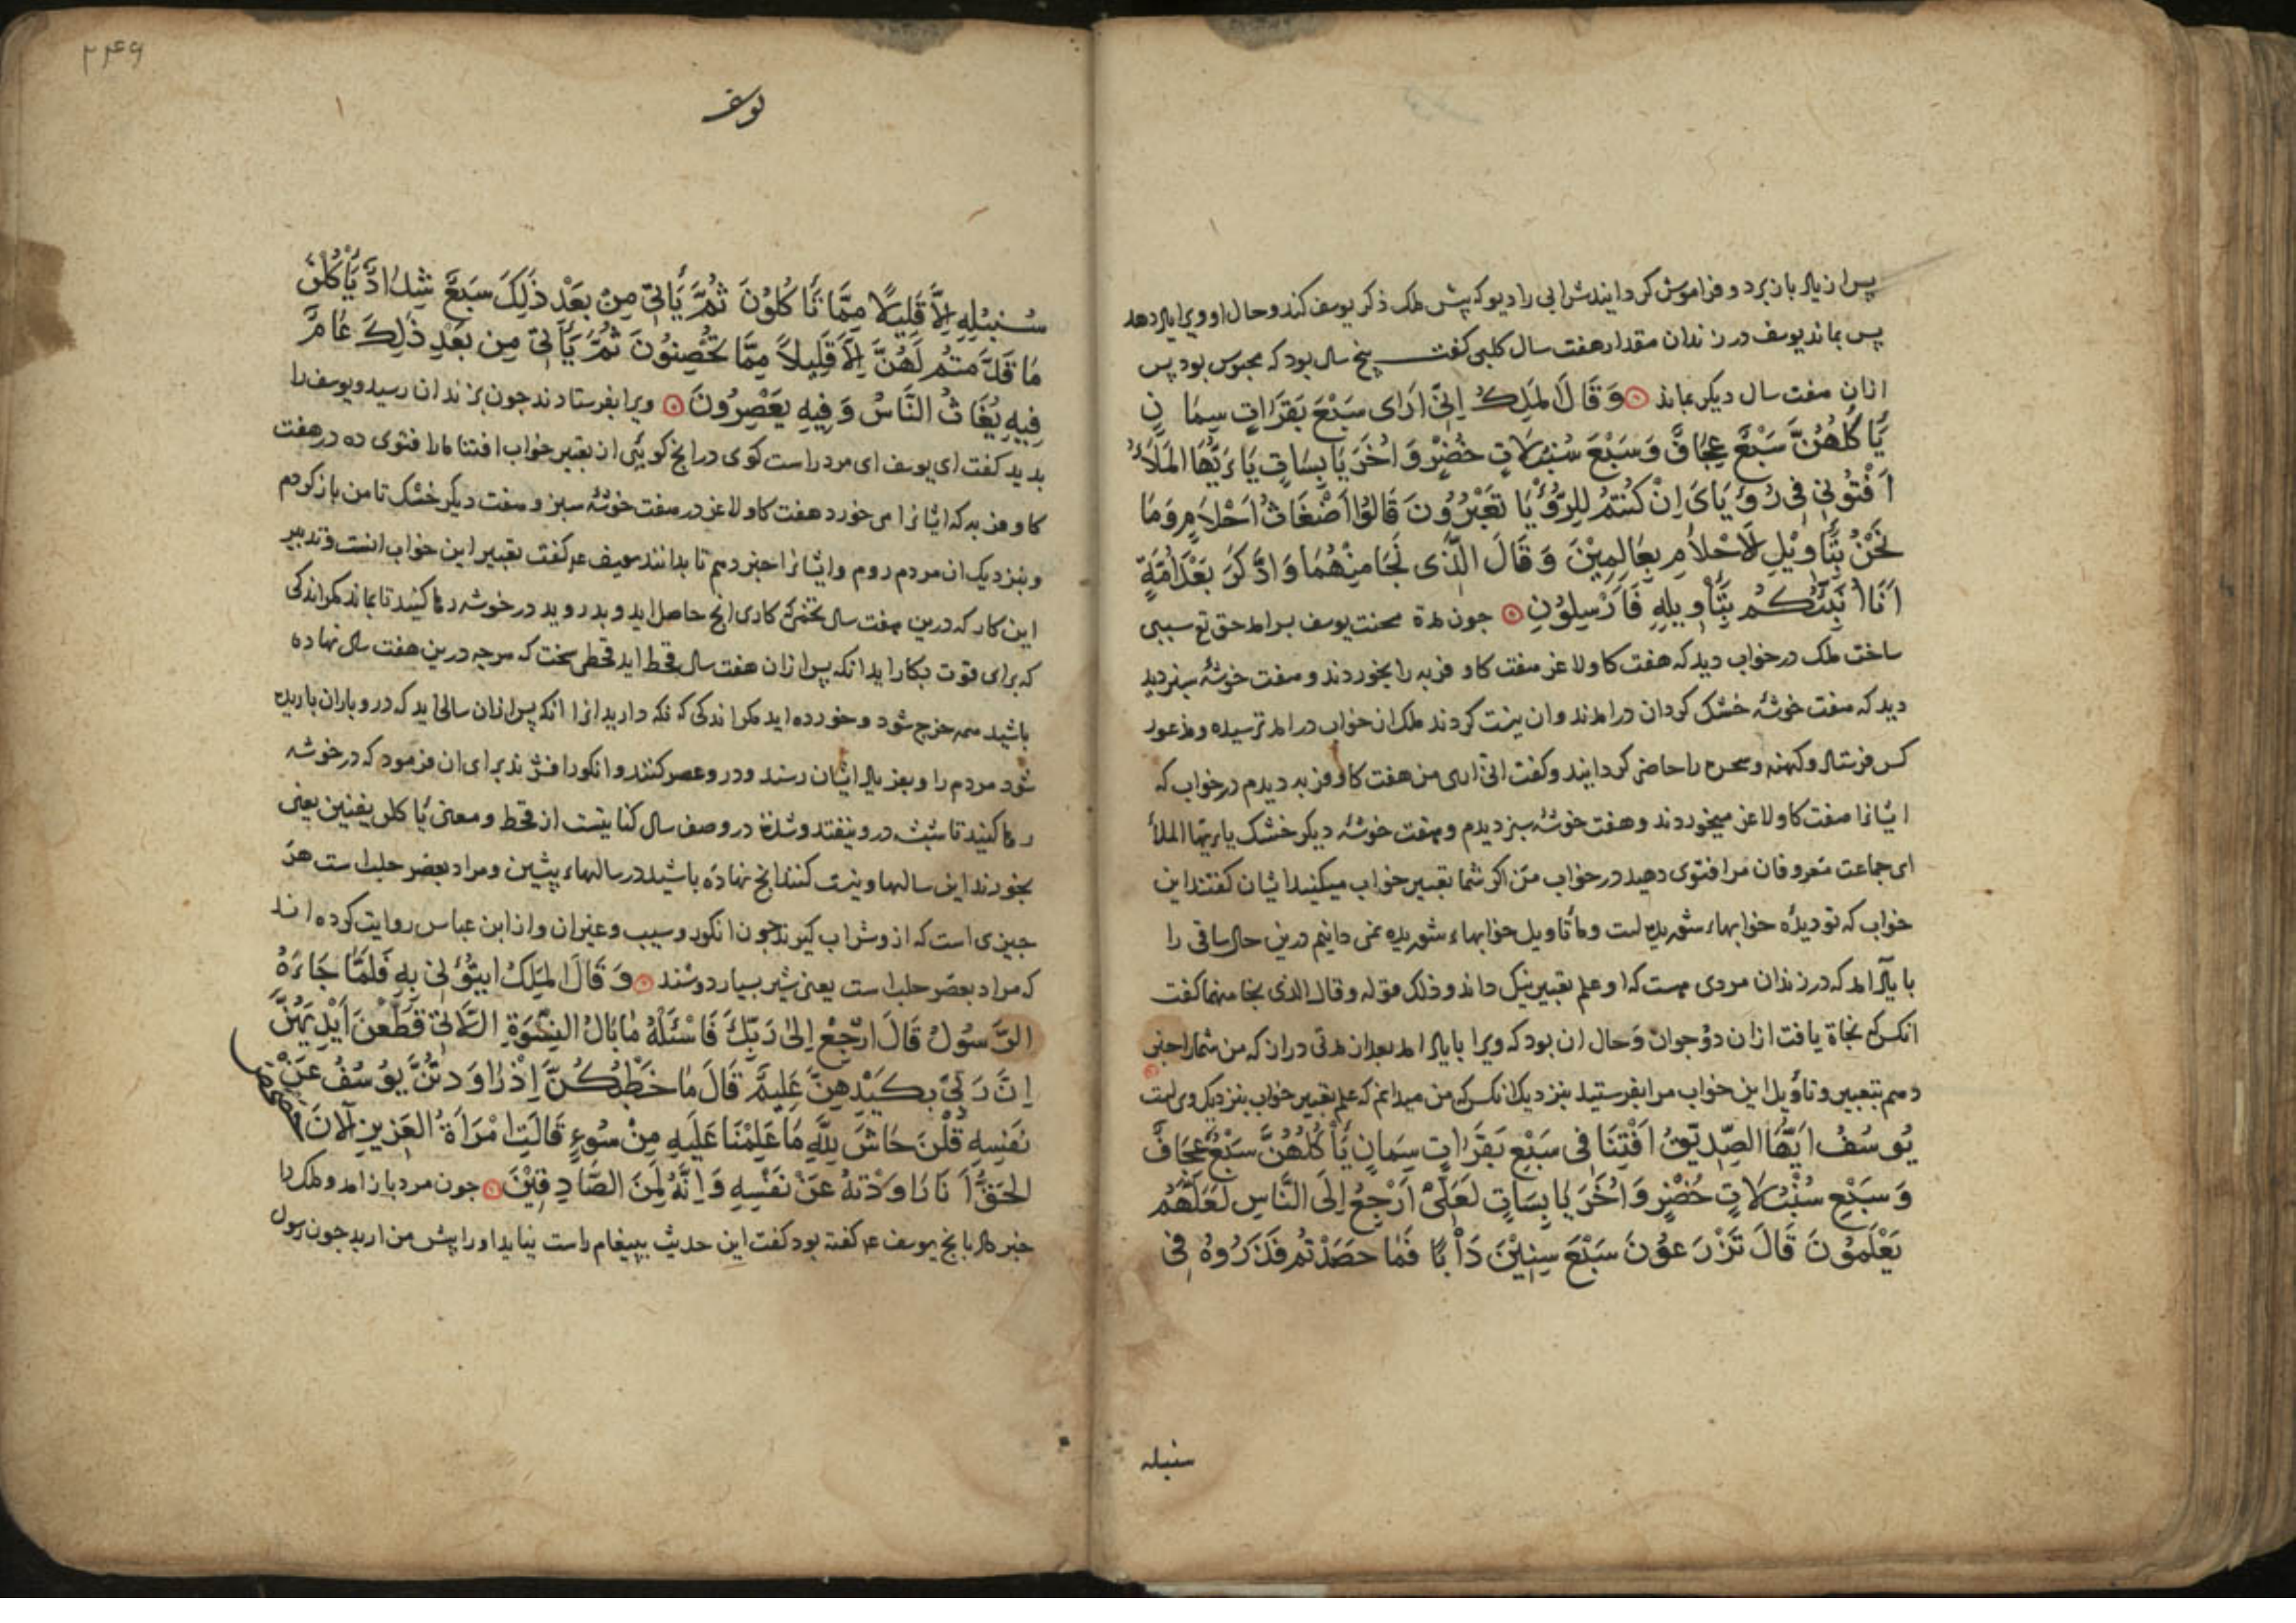 پس از یاد بازبرد و فراموش کردانید شرابی را دیو که پیش ملک ذکر یوسف کند و حال او ویرا یاد دهد
پس بماند یوسف در زندان مقدار هفت سال کلبی کفت پنج سال بود که محبوس بود پس
ازان هفت سال دیکر بماند وَقَالَ الْمَلِكُ اِنّی اَرَای سَبْعَ بَقَرَاتٍ سِمَانٍ
یَأکُلُهُنَّ سَبْعٌ عِجَافٌ وَسَبْعَ سُنْبُلَاتٍ خُضْرٍ وَاُخَرَ یَابِسَاتٍ یَاءَیُّهَا الْمَلَأُ
اَفْتُونِی فِی رُؤیَایَ اِنْ کُنْتُمْ لِلرُّؤْیَا تَعْبُرُوُنَ قَالُوُا اَضْغَاثُ اَحْلَامٍ وَمَا
نَحْنُ بِتَأوِیْلِ الْاَحْلَامِ بِعَالِمِیْنَ وَقَالَ الَّذِی نَجَا مِنْهُمَا وَادَّکَرَ بَعْدَ اُمَّةٍ
اَنَا اُنَبِّئُکُمْ بِتَأوِیلِهِ فَاَرْسِلُوْنِ جون مدة محنت یوسف برامد حق تع سببی
ساخت ملک در خواب دید که هفت کاو لاغر هفت کاو فربه را بخوردند و هفت خوشۀ سبز دید
دید که هفت خوشۀ خشک کردان درامدند وان نیست کردند ملک ازان خواب درامد ترسیده و مذعور
کس فرستاد و کهنه و سحره را حاضر کردانید و کفت انی اری من هفت کاو فربه دیدم در خواب که
ایشانرا هفت کاو لاغر میخوردند و هفت خوشۀ سبز دیدم و هفت خوشۀ دیکر خشک یا ایها الملأ
ای جماعت معروفان مرا فتوی دهید در خواب من اکر شما تعبیر خواب میکنید ایشان کفتند این
خواب که تو دیدۀ خوابهاء شوریده است و ما تأویل خوابهاء شوریده نمی دانیم درین حال ساقی را
با یاد امد که در زندان مردی هست که او علم تعبیر نیک داند و ذلک قوله وقال الذی نجا منهما کفت
انکس که نجاة یافت ازان دو جوان و حال ان بود که ویرا با یاد امد بعد از مدتی دران که من شمارا خبر
دهم بتعبیر و تأویل این خواب مرا بفرستید بنزدیک انکس که من میدانم که علم تعبیر خواب بنزدیک وی است
یُوسُفُ اَیُّهَا الصِّدِّیْقُ اَفْتِنَا فِی سَبْعِ بَقَرَاتٍ سِمَانٍ یَأْکُلُهُنَّ سَبْعٌ عِجَافٌ
وَسَبْعِ سُنْبُلَاتٍ خُضْرٍ وَاُخَرَ یَابِسَاتٍ لَعَلِّیْ اَرْجِعُ اِلَی النَّاسِ لَعَلَّهُمْ
یَعْلَمُوْنَ قَالَ تَزْرَعُوْنَ سَبْعَ سِنِیْنَ دَأْبًا فَمَا حَصَدْتُمْ فَذَرُوهُ فِی
سنبله
۲۴۹
یوسف
سُنْبُلِهِ اِلَّا قَلِیْلًا مِمَّا تَأکُلُوْنَ ثُمَّ یَأتِی مِنْ بَعْدِ ذَلِکَ سَبْعٌ شِدَادٌ یَأْکُلْنَ
مَا قَدَّمْتُمْ لَهُنَّ اِلَّا قَلِیلًا مِمَّا تُحْصِنُوُنَ ثُمَّ یَأتِی مِن بَعْدِ ذَلِکَ عَامٌ
فِیهِ یُغَاثُ النَّاسُ وَفِیهِ یَعْصِرُونَ ویرا بفرستادند جون بزندان رسید و یوسف را
بدید کفت ای یوسف ای مرد راست کوی درانج کویئی ان تعبیر خواب افتنا مارا فتوی ده در هفت
کاو فربه که ایشانرا می خورد هفت کاو لاغر در هفت خوشۀ سبز و هفت دیکر خشک تا من بازکردم
وبنزدیک ان مردم روم وایشانرا خبر دهم تا بدانند یوسف عم کفت تعبیر این خواب انست و تدبیر
این کار که درین هفت سال تخم کاری انج حاصل اید و بدروید در خوشه رها کنید تا بماند مکر اندکی
که برای قوت بکار اید انکه پس ازان هفت سال قحط اید قحطی سخت که هرجه درین هفت سال نهاده
باشید همه خرج شود و خورده اید مکر اندکی که نکه دارید انرا انکه پس ازان سالی اید که درو باران باریده
شود مردم را و بفریاد ایشان رسند و درو عصر کنند و انکور افشرند برای ان فرمود که در خوشه
رها کنید تا شپش درو نیفتد و شدة در وصف سال کنایتست از قحط و معنی یأکلن یفنین یعنی
بخورند این سالها و نیست کنند انج نهاده باشید در سالهاء پیشین و مراد بعصر حلب است هر
جیزی است که ازو شراب کیرند جون انکور و سیب و غیران و از ابن عباس روایت کرده اند
که مراد بعصر حلب است یعنی شیر بسیار دوشند وَقَالَ الْمَلِكُ ایتُوْنِی بِهِ فَلَمَّا جَاءَهُ
الرَّسُوْلُ قَالَ ارْجِعْ اِلٰی رَبِّكَ فَاسْئَلْهُ مَا بَالُ النِّسْوَةِ اللَّاتِی قَطَّعْنَ اَیْدِیَهُنَّ
اِنَّ رَبِّی بِکَیْدِهِنَّ عَلِیمٌ قَالَ مَا خَطْبُکُنَّ اِذْ رَاوَدْتُنَّ یُوْسُفَ عَنْ
نَفْسِهِ قُلْنَ حَاشَ لِلّهِ مَا عَلِمْنَا عَلَیهِ مِنْ سُوْءٍ قَالَتِ امْرَأَةُ الْعَزِیزِ الْآنَ حَصْحَصَ
الْحَقُّ اَنَا رَاوَدْتهُ عَنْ نَفْسِهِ وَاِنَّهُ لَمِنَ الصَّادِقِیْنَ جون مرد باز امد و ملک را
خبر داد بانج یوسف عم کفته بود کفت این حدیث بپیغام راست نیاید اورا پیش من ارید جون رسول